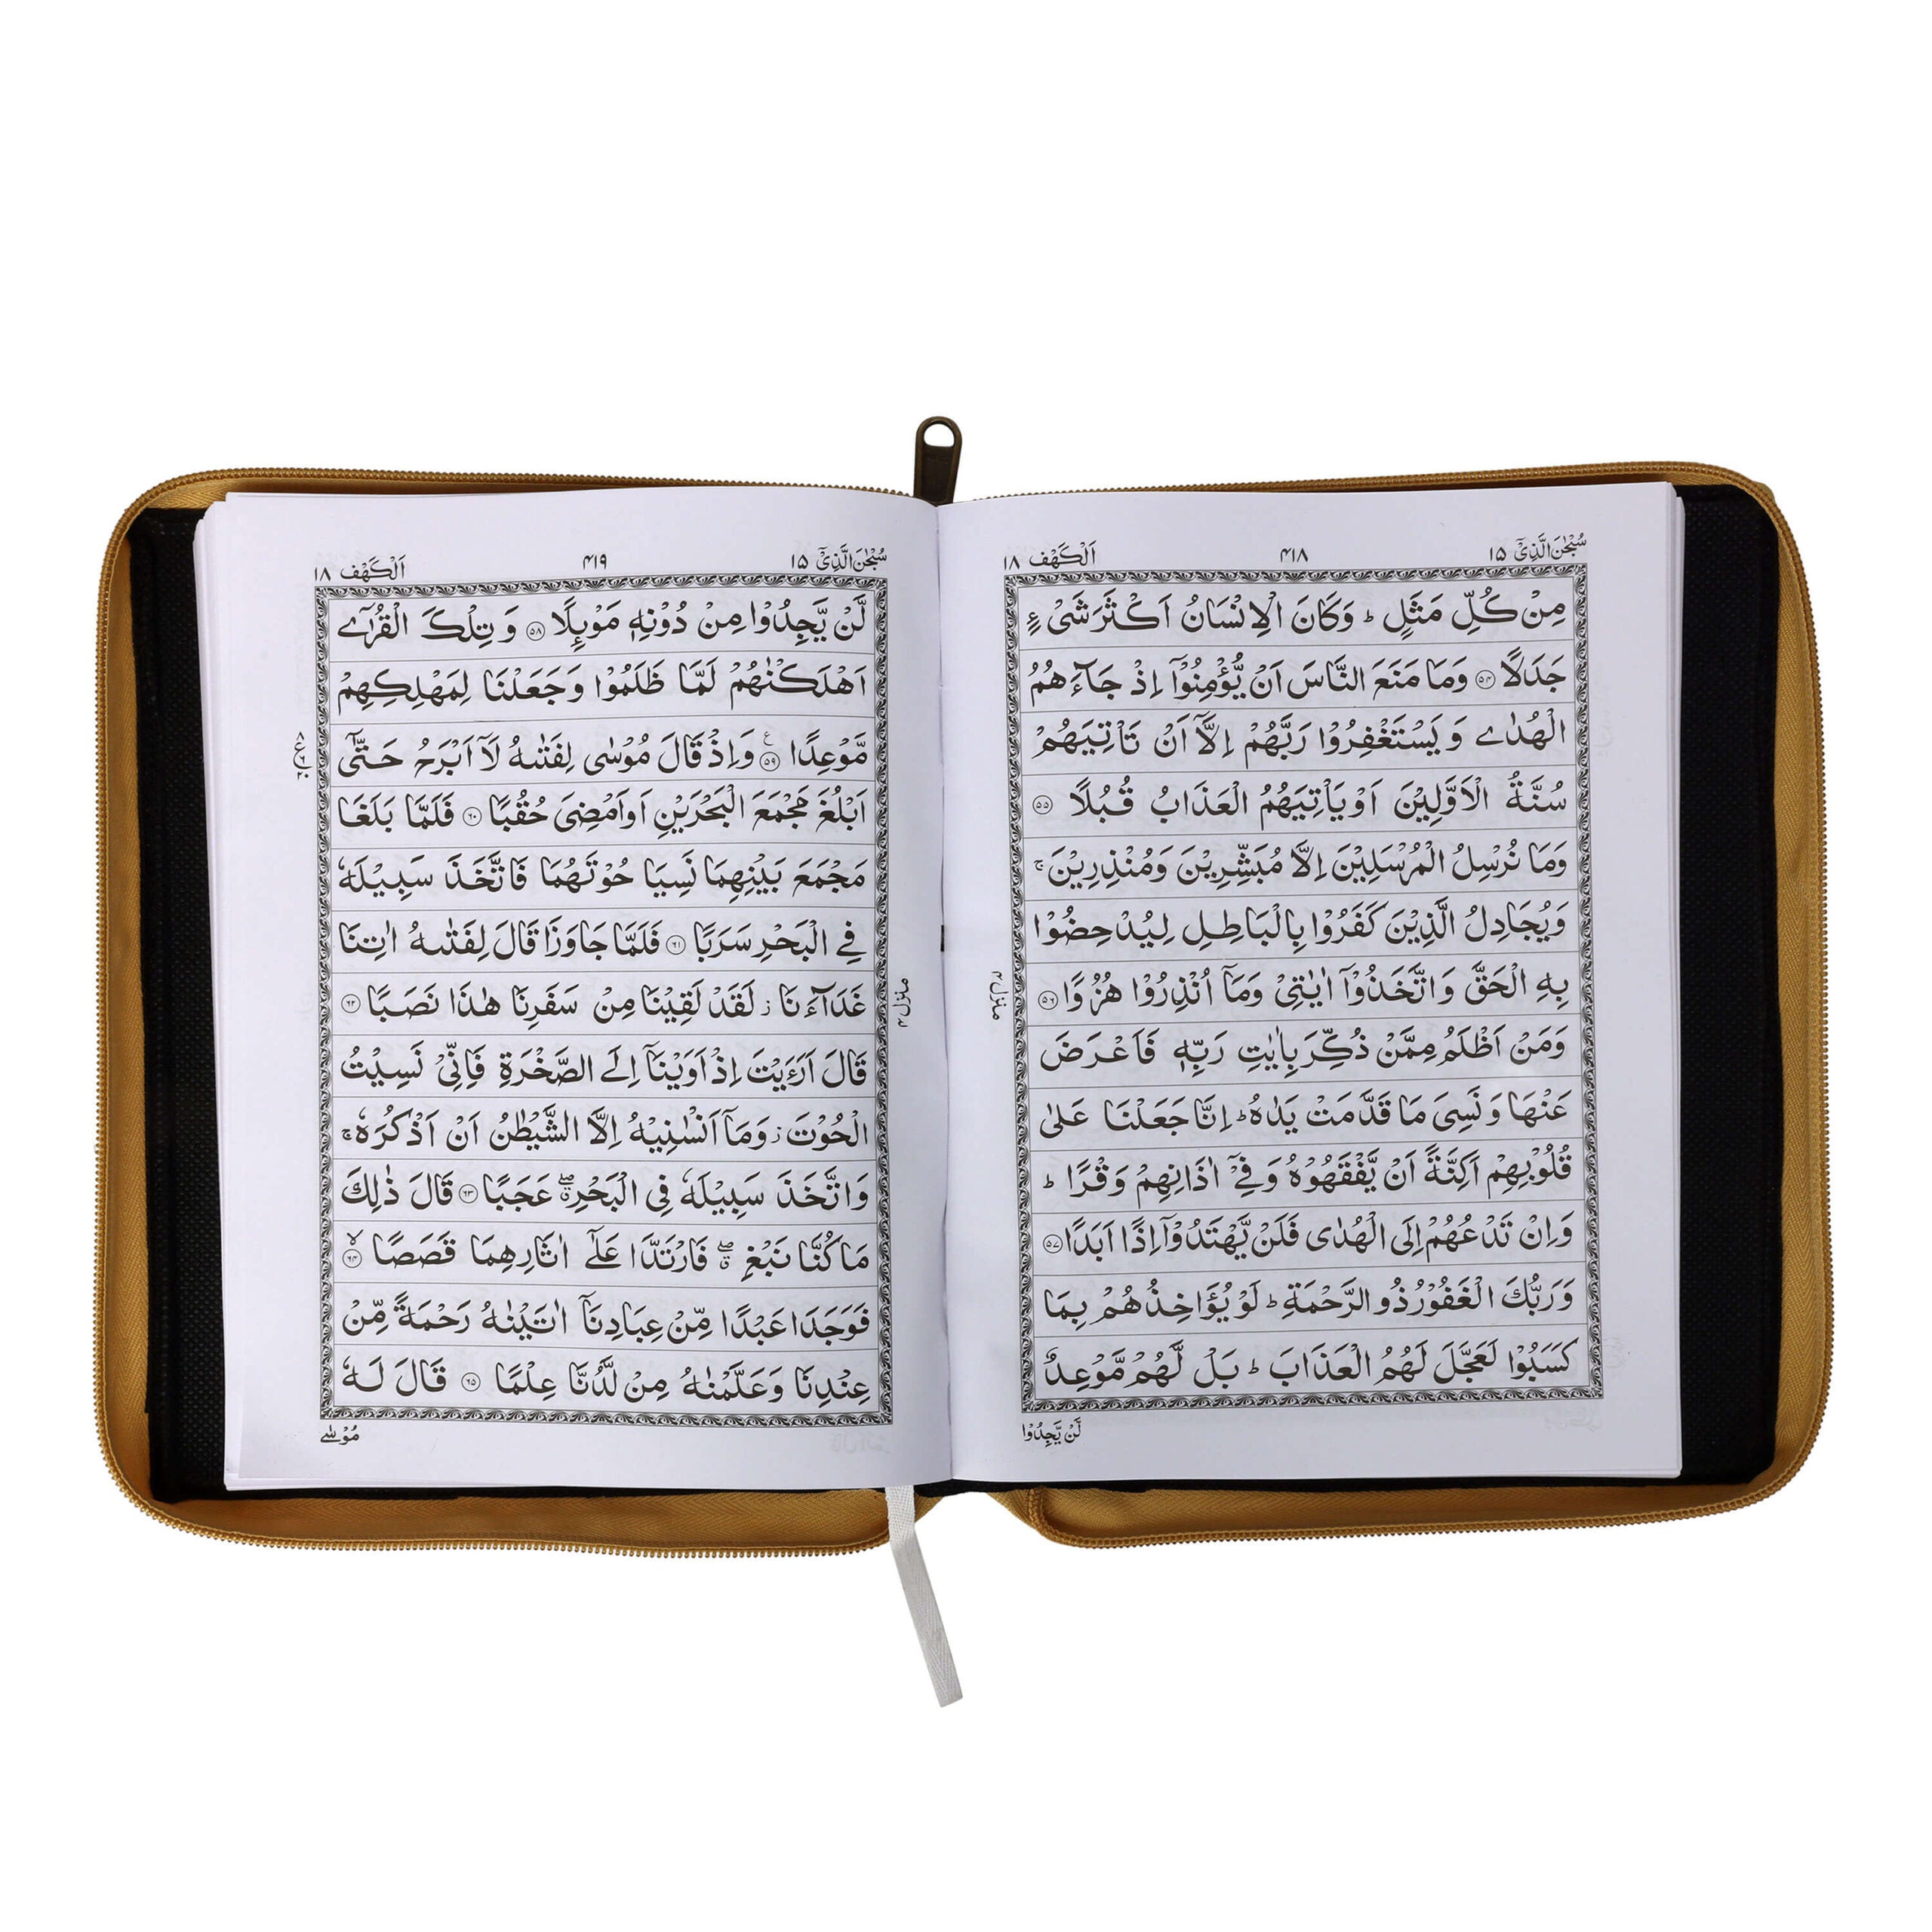 سُبْحٰنَ الَّذِیْٓ ۱۵
۴۱۸
اَلْكَهْف ۱۸
مِنْ كُلِّ مَثَلٍ ؕ وَكَانَ الْاِنْسَانُ اَكْثَرَ شَیْءٍ
جَدَلًا ﴿۵۴﴾ وَمَا مَنَعَ النَّاسَ اَنْ يُّؤْمِنُوْٓا اِذْ جَآءَهُمُ
الْهُدٰى وَيَسْتَغْفِرُوْا رَبَّهُمْ اِلَّآ اَنْ تَاْتِيَهُمْ
سُنَّةُ الْاَوَّلِيْنَ اَوْ يَاْتِيَهُمُ الْعَذَابُ قُبُلًا ﴿۵۵﴾
وَمَا نُرْسِلُ الْمُرْسَلِيْنَ اِلَّا مُبَشِّرِيْنَ وَمُنْذِرِيْنَ ۚ
وَيُجَادِلُ الَّذِيْنَ كَفَرُوْا بِالْبَاطِلِ لِيُدْحِضُوْا
بِهِ الْحَقَّ وَاتَّخَذُوْٓا اٰيٰتِیْ وَمَآ اُنْذِرُوْا هُزُوًا ﴿۵۶﴾
وَمَنْ اَظْلَمُ مِمَّنْ ذُكِّرَ بِاٰيٰتِ رَبِّهٖ فَاَعْرَضَ
عَنْهَا وَنَسِیَ مَا قَدَّمَتْ يَدٰهُ ؕ اِنَّا جَعَلْنَا عَلٰى
قُلُوْبِهِمْ اَكِنَّةً اَنْ يَّفْقَهُوْهُ وَفِیْٓ اٰذَانِهِمْ وَقْرًا ؕ
وَاِنْ تَدْعُهُمْ اِلَى الْهُدٰى فَلَنْ يَّهْتَدُوْٓا اِذًا اَبَدًا ﴿۵۷﴾
وَرَبُّكَ الْغَفُوْرُ ذُو الرَّحْمَةِ ؕ لَوْ يُؤَاخِذُهُمْ بِمَا
كَسَبُوْا لَعَجَّلَ لَهُمُ الْعَذَابَ ؕ بَلْ لَّهُمْ مَّوْعِدٌ
لَّنْ يَّجِدُوْا
منزل ۴
سُبْحٰنَ الَّذِیْٓ ۱۵
۴۱۹
اَلْكَهْف ۱۸
لَّنْ يَّجِدُوْا مِنْ دُوْنِهٖ مَوْئِلًا ﴿۵۸﴾ وَتِلْكَ الْقُرٰٓى
اَهْلَكْنٰهُمْ لَمَّا ظَلَمُوْا وَجَعَلْنَا لِمَهْلِكِهِمْ
مَّوْعِدًا ﴿۵۹﴾ وَاِذْ قَالَ مُوْسٰى لِفَتٰىهُ لَآ اَبْرَحُ حَتّٰٓى
اَبْلُغَ مَجْمَعَ الْبَحْرَيْنِ اَوْ اَمْضِیَ حُقُبًا ﴿۶۰﴾ فَلَمَّا بَلَغَا
مَجْمَعَ بَيْنِهِمَا نَسِيَا حُوْتَهُمَا فَاتَّخَذَ سَبِيْلَهٗ
فِی الْبَحْرِ سَرَبًا ﴿۶۱﴾ فَلَمَّا جَاوَزَا قَالَ لِفَتٰىهُ اٰتِنَا
غَدَآءَنَا ز لَقَدْ لَقِيْنَا مِنْ سَفَرِنَا هٰذَا نَصَبًا ﴿۶۲﴾
قَالَ اَرَءَيْتَ اِذْ اَوَيْنَآ اِلَى الصَّخْرَةِ فَاِنِّیْ نَسِيْتُ
الْحُوْتَ ز وَمَآ اَنْسٰنِيْهُ اِلَّا الشَّيْطٰنُ اَنْ اَذْكُرَهٗ ۚ
وَاتَّخَذَ سَبِيْلَهٗ فِی الْبَحْرِ ۖۗ عَجَبًا ﴿۶۳﴾ قَالَ ذٰلِكَ
مَا كُنَّا نَبْغِ ۖۗ فَارْتَدَّا عَلٰٓى اٰثَارِهِمَا قَصَصًا ﴿۶۴﴾
فَوَجَدَا عَبْدًا مِّنْ عِبَادِنَآ اٰتَيْنٰهُ رَحْمَةً مِّنْ
عِنْدِنَا وَعَلَّمْنٰهُ مِنْ لَّدُنَّا عِلْمًا ﴿۶۵﴾ قَالَ لَهٗ
مُوْسٰى
منزل ۴